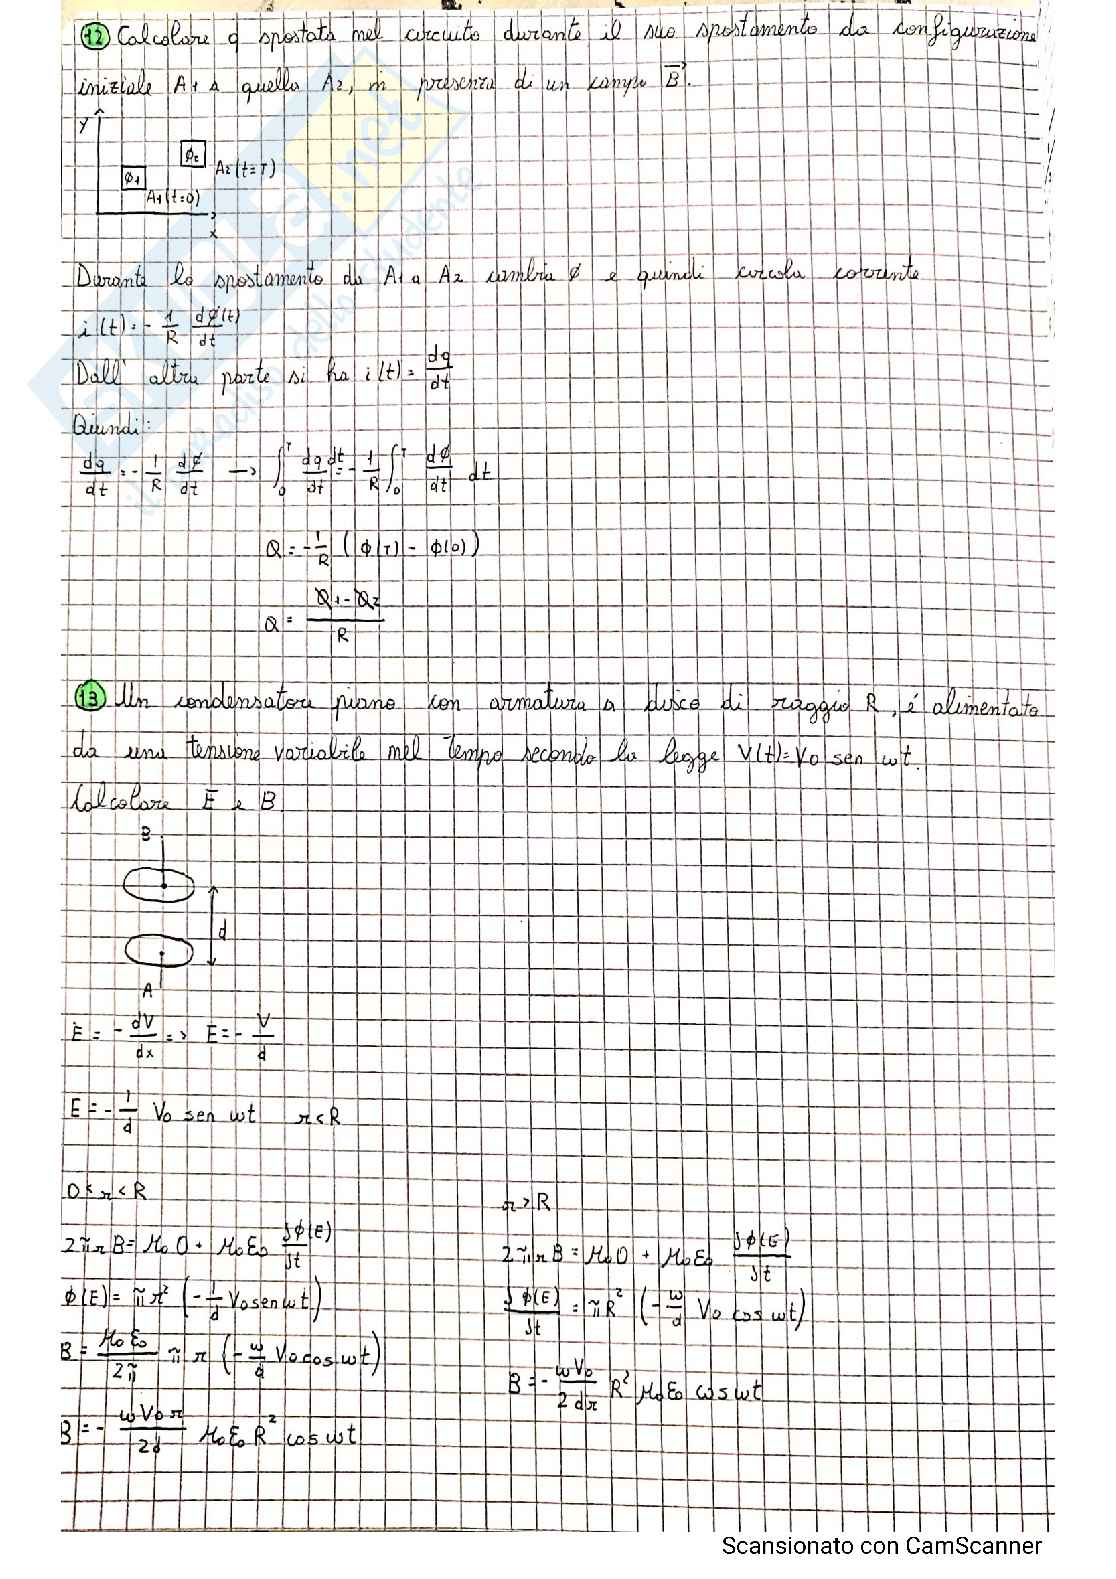 12 Calcolare q spostata nel circuito durante il suo spostamento da configurazione
iniziale A1 a quella A2, in presenza di un campo B.
y
φ2
A2(t=T)
φ1
A1(t=0)
x
Durante lo spostamento da A1 a A2 cambia φ e quindi circola corrente
i(t)=-1/R dφ(t)/dt
Dall' altra parte si ha i(t)=dq/dt
Quindi:
dq/dt=-1/R dφ/dt → ∫0^T dq/dt dt=-1/R ∫0^T dφ/dt dt
Q=-1/R (φ(T)-φ(0))
Q=(φ1-φ2)/R
13 Un condensatore piano con armatura a disco di raggio R, é alimentato
da una tensione variabile nel tempo secondo la legge V(t)=Vo sen ωt.
Calcolare E e B
B
d
A
E=-dV/dx => E=-V/d
E=-1/d Vo sen ωt r<R
0<r<R
2πr B=μ0 0+ μ0ε0 δφ(E)/δt
φ(E)=πr² (-1/d Vo sen ωt)
B=μ0ε0/2π π r (-ω/d Vo cos ωt)
B=-ωVo r/2d μ0ε0 R² cos ωt
r>R
2πr B=μ0 0 + μ0ε0 δφ(E)/δt
δφ(E)/δt=πR² (-ω/d Vo cos ωt)
B=-ωVo/2dr R² μ0ε0 cos ωt
Scansionato con CamScanner